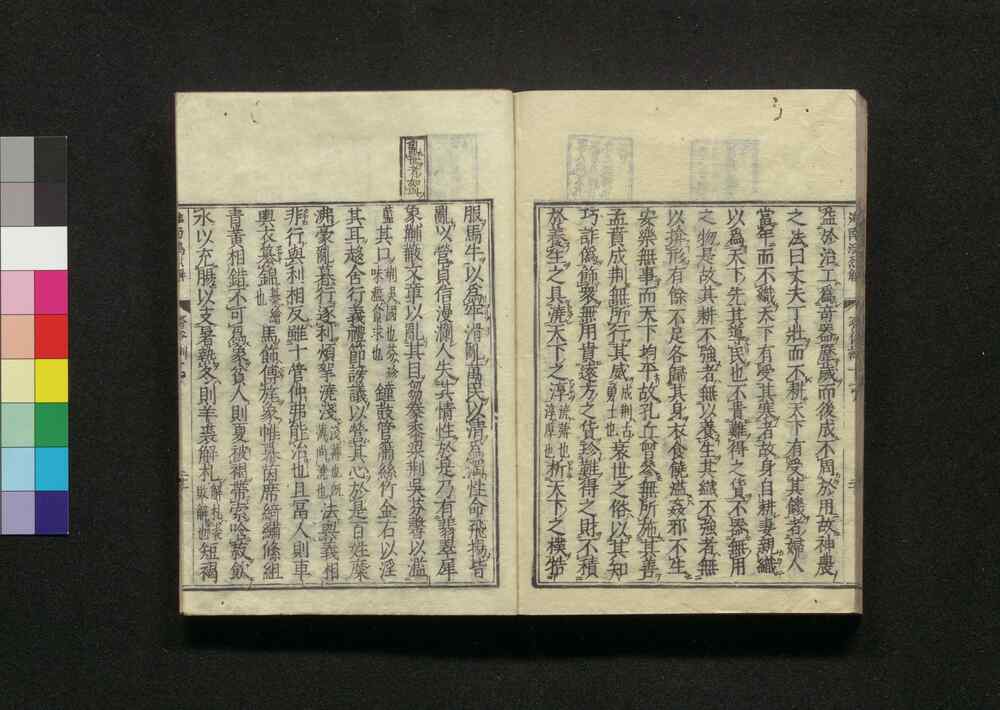 益於治工爲奇器歷歲而後成不周於用故神農
之法曰丈夫丁壯而不耕天下有受其饑者婦人
當年而不織天下有受其寒者故身自耕妻親織
以爲天下先其導民也不貴難得之貨不器無用
之物是故其耕不強者無以養生其織不強者無
以揜形有餘不足各歸其身衣食饒溢姦邪不生
安樂無事而天下均平故孔丘曾參無所施其善
孟賁成荆無所行其威成荆古勇士也衰世之俗以其知
巧詐僞飾衆無用貴遠方之貨珍難得之財不積
於養生之具澆天下之淳澆薄也淳厚也析天下之樸牿
服馬牛以爲牢滑亂萬民以清爲濁性命飛揚皆
亂以營貞信漫瀾人失其情性於是乃有翡翠犀
象黼黻文章以亂其目芻豢黍粱荆吳芬馨以濫
其口荆吳國也芬珍味鐘鼓管簫絲竹金石以淫
其耳趍舍行義禮節謗議以營其心於是百姓糜
沸豪亂暮行逐利煩挐澆淺法與義相
非行與利相反雖十管仲弗能治也且富人則車
輿衣纂錦纂繪也馬飾傅旄象帷幕茵席綺繡絛組
青黃相錯不可爲象貧人則夏被褐帶索唅菽飲
水以充腸以支暑熱冬則羊裘解札解札裘敗解也短褐